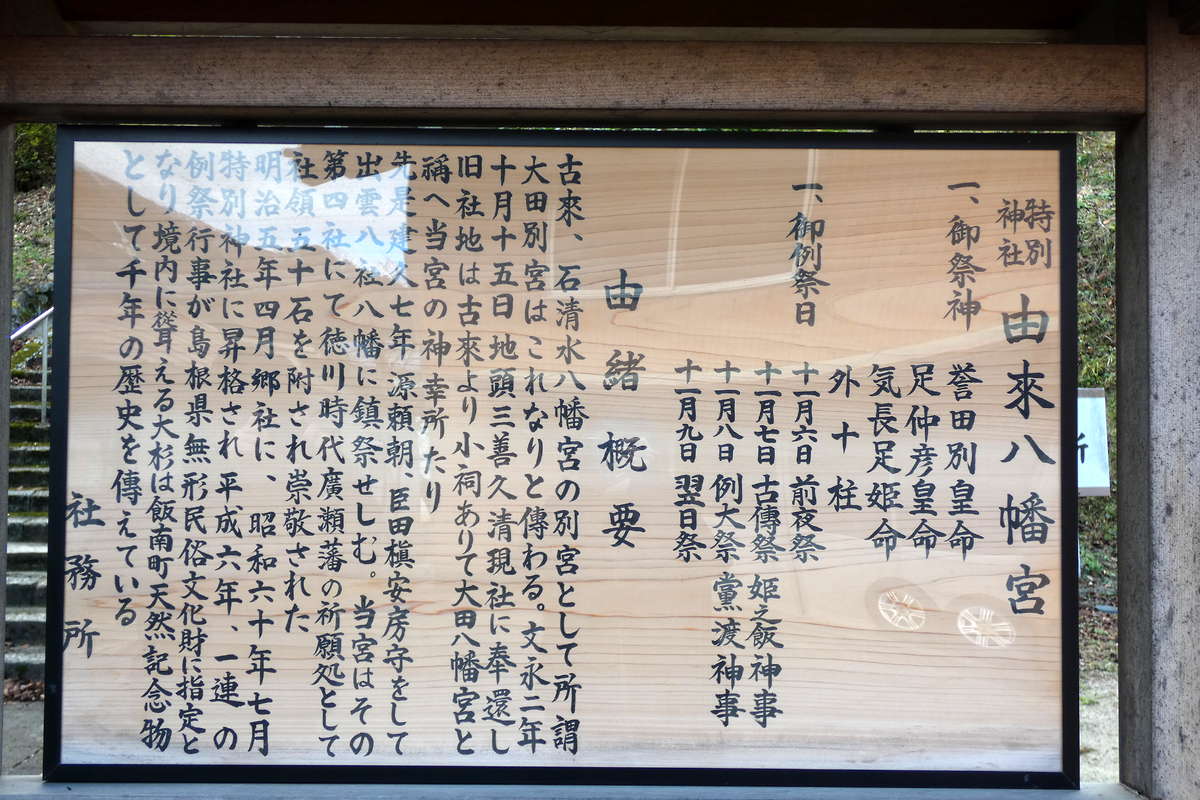 特別神社 由來八幡宮
一、御祭神
誉田別皇命
足仲彦皇命
気長足姫命
外十柱
一、御例祭日
十一月六日 前夜祭
十一月七日 古傳祭 姫之飯神事
十一月八日 例大祭 黨渡神事
十一月九日 翌日祭
由緒概要
古來、石清水八幡宮の別宮として所謂
大田別宮はこれなりと傳わる。文永二年
十月十五日地頭三善久清現社に奉還し
旧社地は古來より小祠ありて大田八幡宮と
稱へ当宮の神幸所たり
先是建久七年源頼朝、臣田槇安房守をして
出雲八社八幡に鎮祭せしむ。当宮はその
第四社にて徳川時代廣瀬藩の祈願処として
社領五十石を附され崇敬された
明治五年四月郷社に、昭和六十年七月
特別神社に昇格され平成六年、一連の
例祭行事が島根県無形民俗文化財に指定と
なり境内に從耳える大杉は飯南町天然記念物
として千年の歴史を傳えている
社務所
所